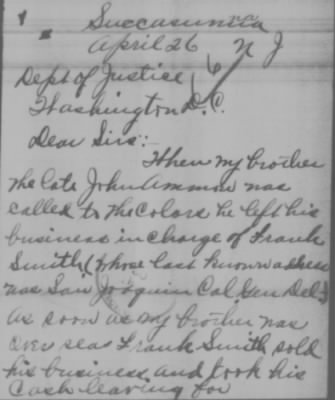 Succasunna
April 26 N J
Dept of Justice
Washington D.C.
Dear Sirs:-
When my brother
the late John Ammon was
called to the colors he left his
business in charge of Frank
Smith (whose last known address
was San Joaquin Cal Gen Del)
as soon as my brother was
over seas Frank Smith sold
his business and took his
cash leaving for